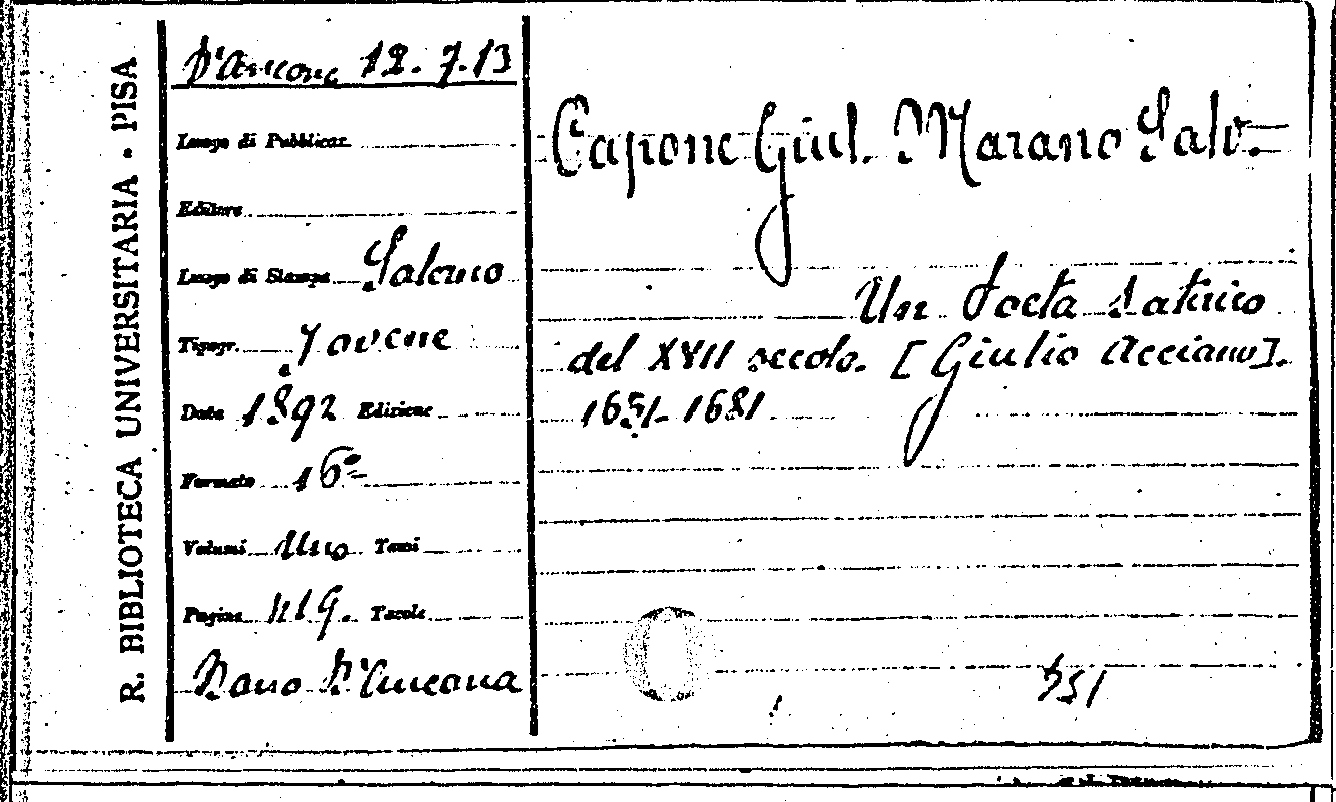 R. BIBLIOTECA UNIVERSITARIA · PISA
D'Ancona 12. 7. 13
Luogo di Pubblicaz.
Editore
Luogo di Stampa Salerno
Tipogr. Jovene
Data 1892 Edizione
Formato 16º
Volumi Uno Tomi
Pagine 119. Tavole
Dono D'Ancona
Capone Giul. Marano Salv.
Un Poeta Satirico
del XVII secolo. [Giulio Acciano].
1651-1681
351